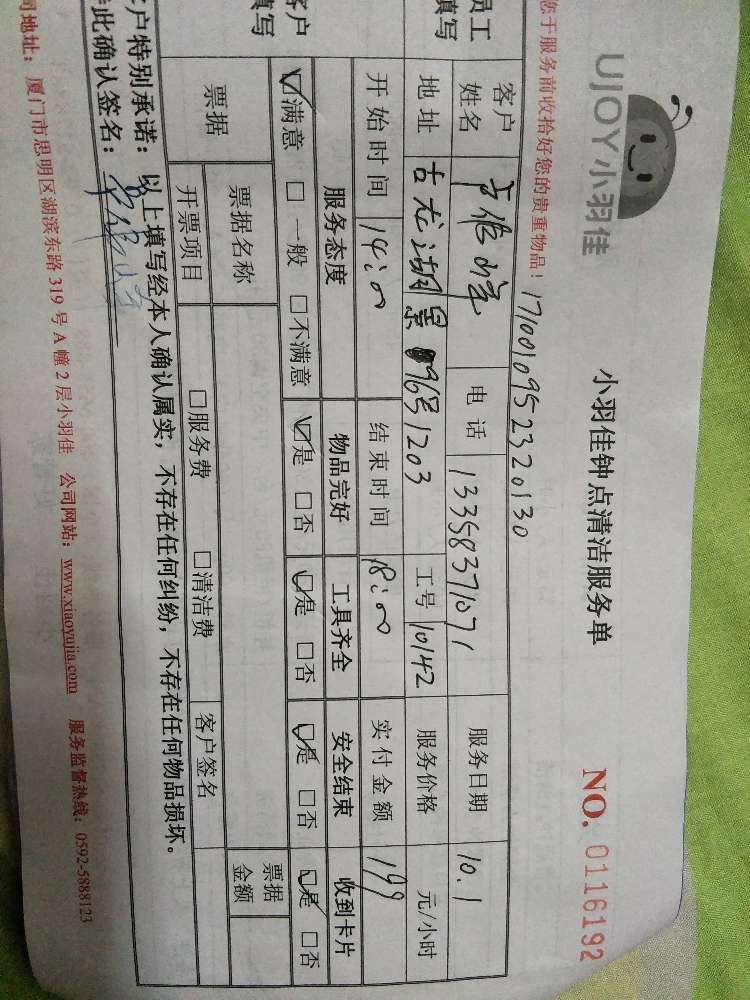 UJOY小羽佳
小羽佳钟点清洁服务单
NO. 0116192
您于服务前收拾好您的贵重物品!
17100109523 20130
员工填写
客户姓名
电话 13358371071
服务日期 10.1
地址 古龙湖景 96号1203
工号 10142
服务价格 元/小时
开始时间 14:00
结束时间 18:00
实付金额 199
客户填写
服务态度 物品完好 工具齐全 安全结束 收到卡片
☑满意 □一般 □不满意 ☑是 □否 ☑是 □否 ☑是 □否 ☑是 □否
票据 票据名称 票据金额
开票项目 □服务费 □清洁费 客户签名
客户特别承诺:以上填写经本人确认属实,不存在任何纠纷,不存在任何物品损坏。
此确认签名:
司地址: 厦门市思明区湖滨东路 319 号 A 幢 2 层小羽佳 公司网站:www.xiaoyujia.com 服务监督热线:0592-5888123